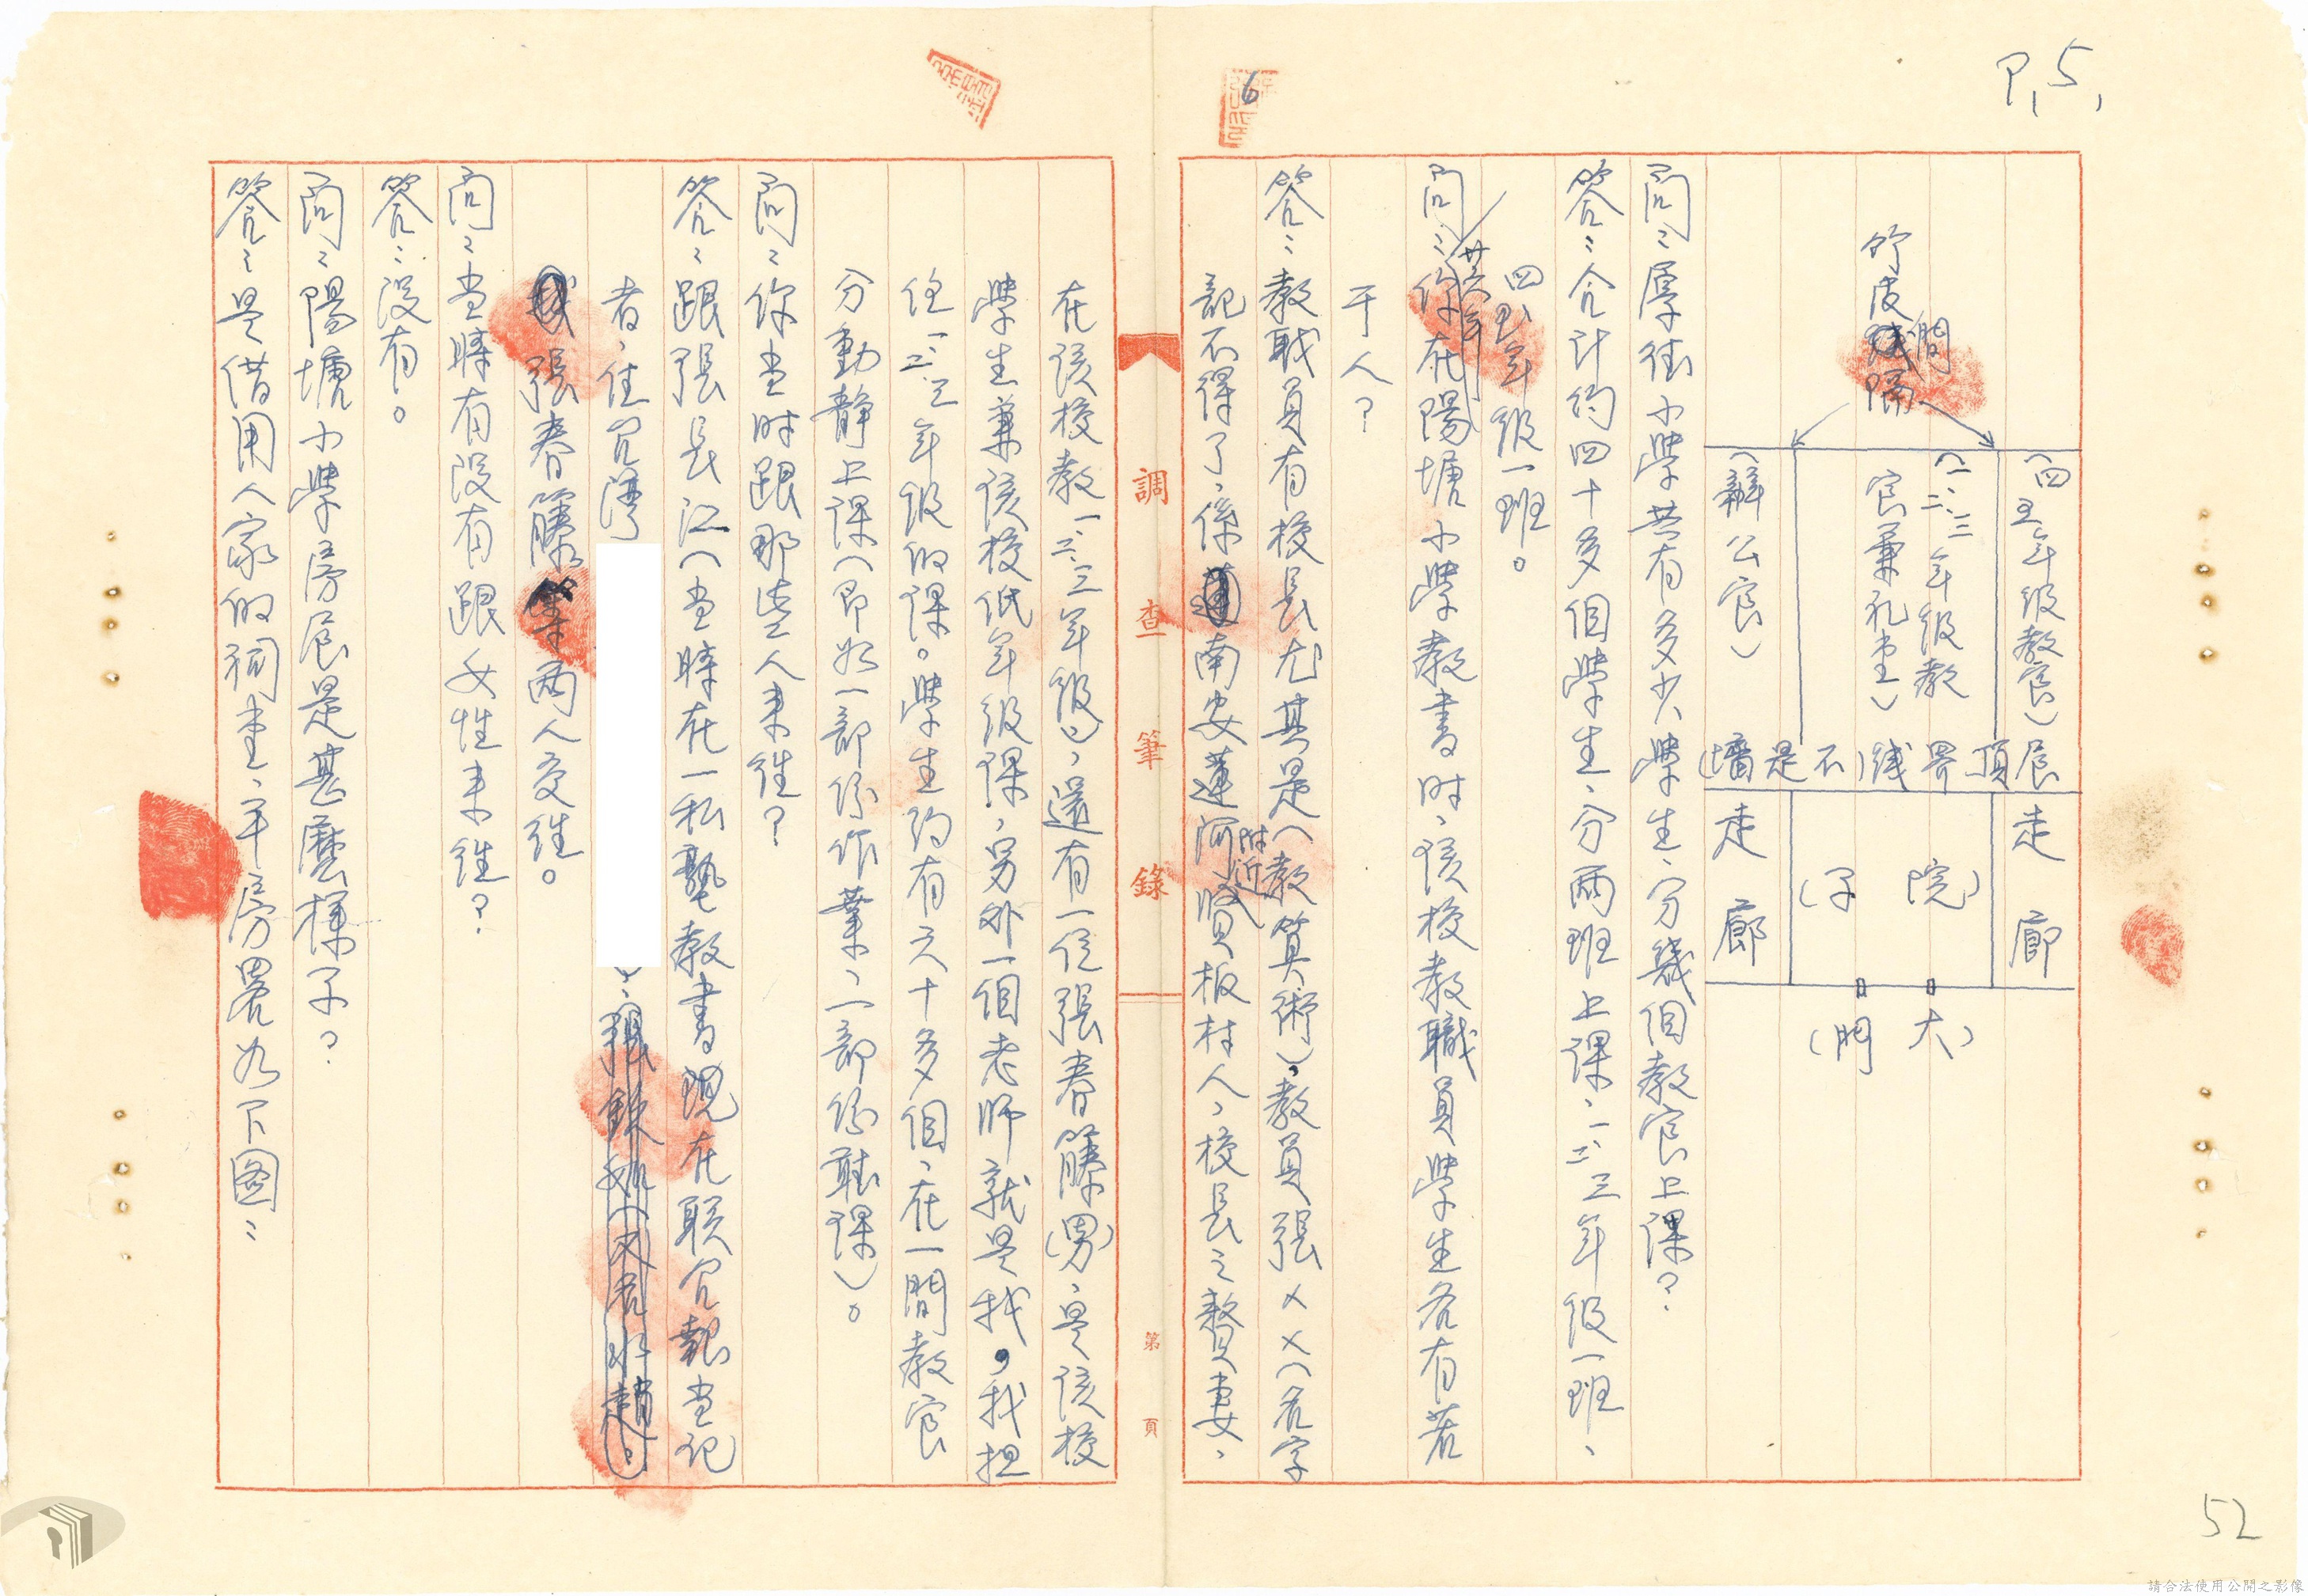 P.5.
6
竹皮間隔
(四五年級教室)
(一、二、三年級教
室兼礼堂)
(辦公室)
屋頂界綫(不是墻)
走廊
(院子)
走廊
(大門)
問:厚街小學共有多少學生、分幾個教室上課?
答:合計約四十多個學生、分兩班上課、一、二、三年級一班、
四五年級一班。
問:廿六年你在陽塘小學教書时、該校教職員學生各有若
干人?
答:教职員有校長尤其是(教算術)、教員張××(名字
記不得了、係南安蓮河附近賢板村人、校長之贅妻、
調查筆錄
第 頁
在該校教一、二、三年級)、還有一位張春籐(男)、是該校
學生兼該校低年級課、另外一個老师就是我,我担
任一、二、三年級的課。學生約有六十多個、在一間教室
分動静上課(即如一部份作業、一部份聽課)。
問:你當时跟那些人来往?
答:跟張長江(當時在一私塾教書現在联合報當记
者、住台灣
張春籐兩人交往。
問:當時有没有跟女性来往?
答:没有。
問:陽塘小學房屋是甚麼樣子?
答:是借用人家的祠堂、平房畧如下圖:
52
請合法使用公開之影像